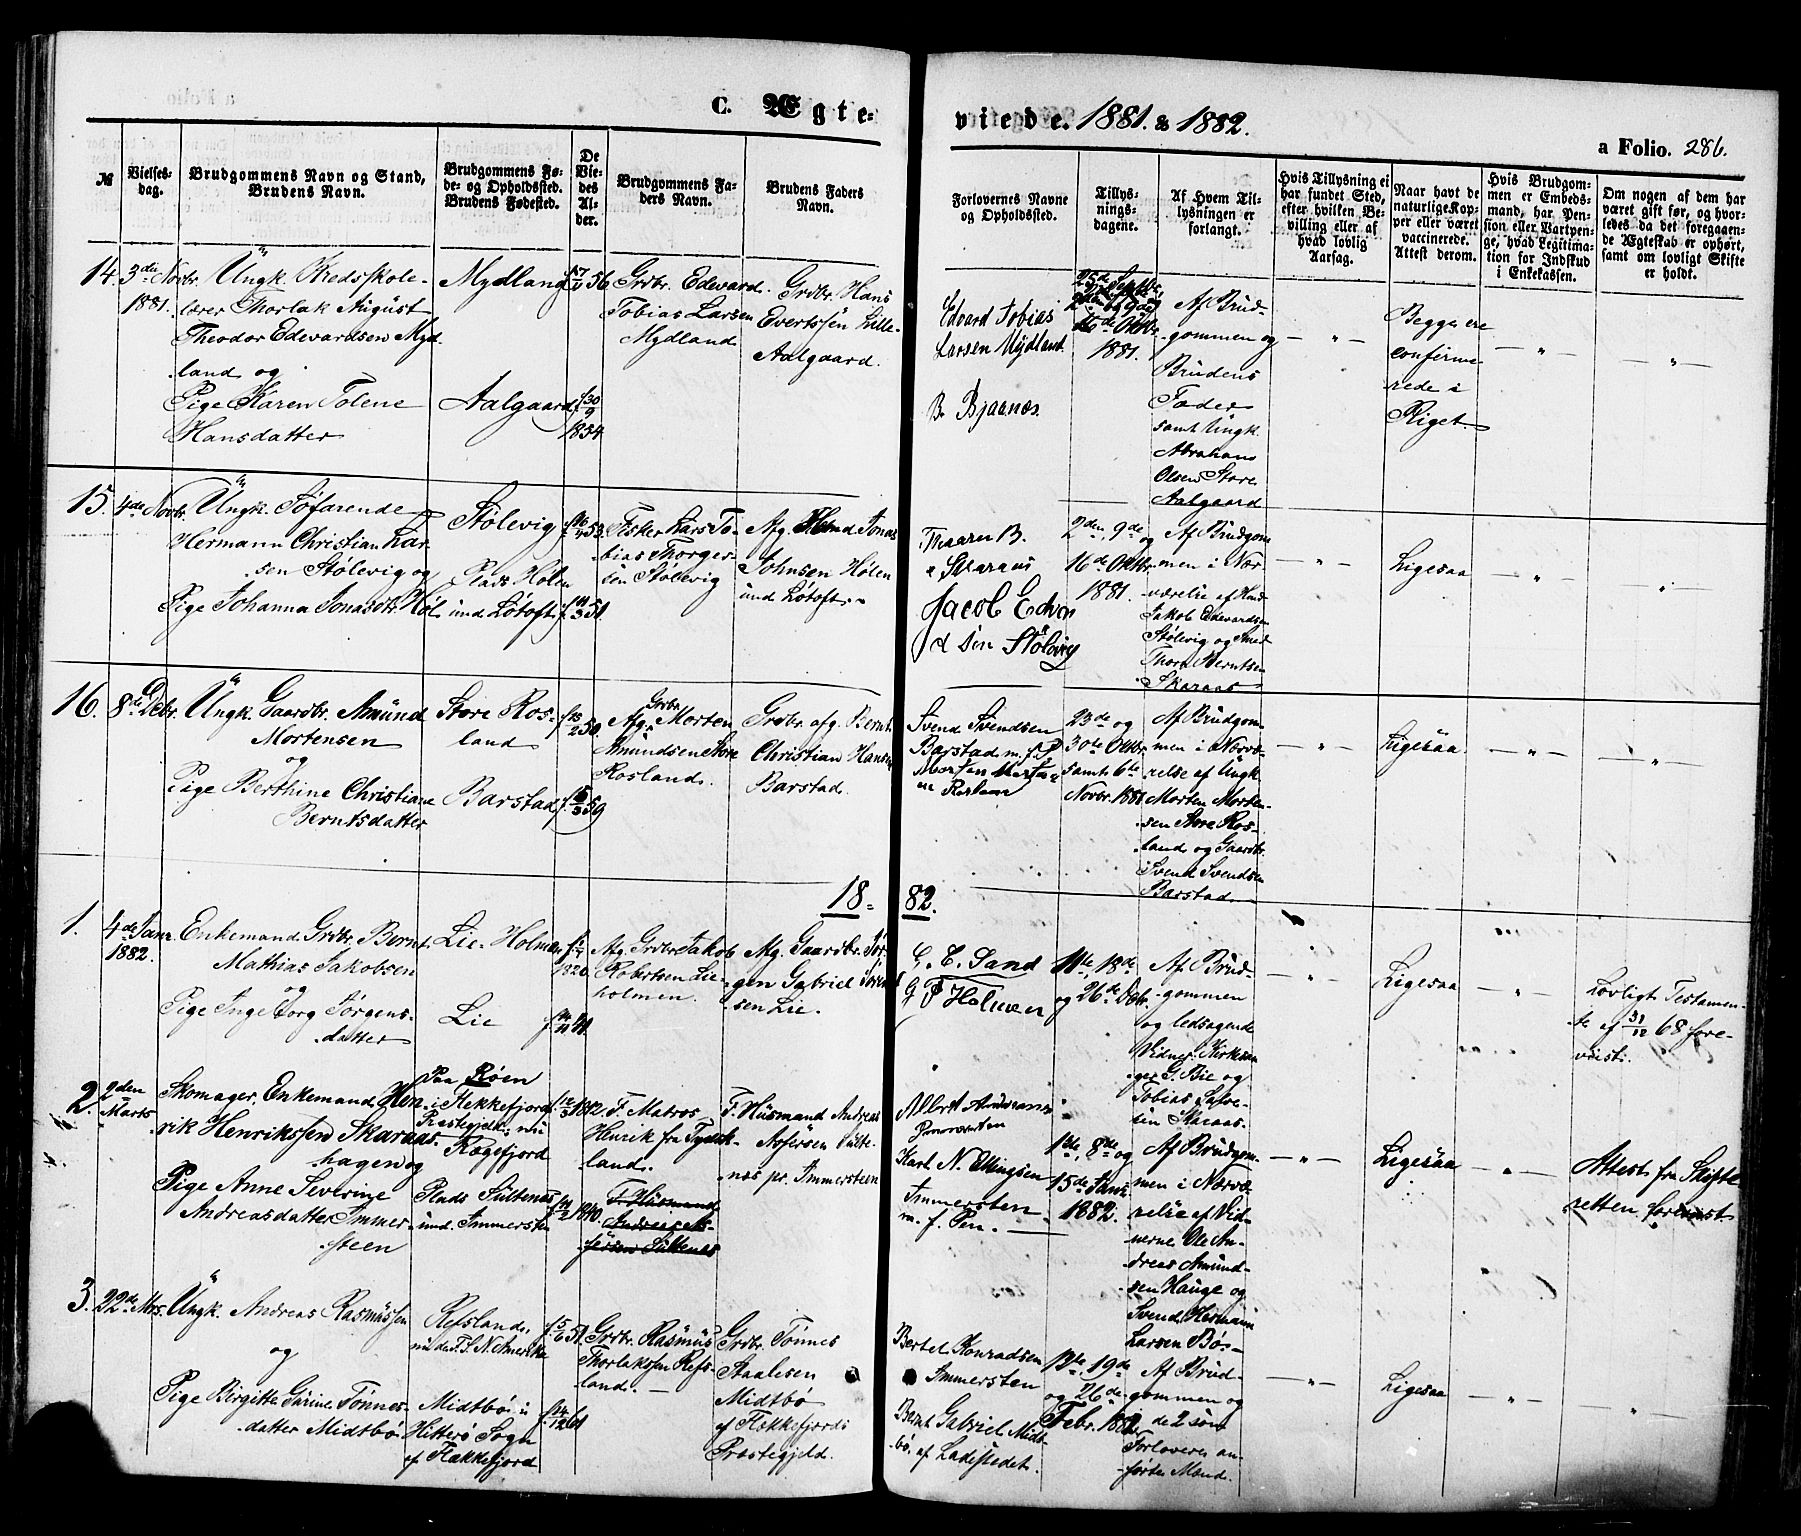 C. Ægte=
viede. 1881. & 1882.
a Folio. 286.
№
Vielses-
dag.
Brudgommens Navn og Stand,
Brudens Navn.
Brudgommens Fø-
de- og Opholdssted.
Brudens Fødested.
De
Vie-
des
Al-
der.
Brudgommens Fa-
ders Navn.
Brudens Faders
Navn.
Forlovernes Navne
og Opholdssted.
Tillys-
nings-
dagene.
Af Hvem Til-
lysningen er
forlangt.
Hvis Tillysning ei
har fundet Sted,
efter hvilken Be-
villing eller af
hvad lovlig
Aarsag.
Naar havt de
naturlige Kop-
per eller været
vaccinerede.
Attest derom.
Hvis Brudgom-
men er Embeds-
mand, har Pen-
sion eller Vartpen-
ge, hvad Legitima-
tion for Indskud
i Enkekassen.
Om nogen af dem har
været gift før, og hvor-
ledes da det foregaaen-
de Ægteskab er ophørt,
samt om lovligt Skifte
er holdt.
14.
3die Novbr.
1881.
Ungk. Kredsskole-
lærer Thorlak August
Theodor Edevardsen Myd-
land og
Pige Karen Tolene
Hansdatter
Mydland
Aalgaard
f. 17/11 56
f. 30/9
1854
Grdbr. Edevard
Tobias Larsen
Mydland
Grdbr. Hans
Evertssen Lille-
Aalgaard.
Edvard Tobias
Larsen Mydland.
B. Bjaanæs.
16de Oktbr.
1881.
Af Brud-
gommen og
Brudens
Fader
samt Ungk.
Abraham
Olsen Store
Aalgaard
Begge ere
confirme-
rede i
Riget.
15.
4de Novbr.
Ungk. Søfarende
Hermann Christian Lar-
sen Stølevig og
Pige Johanna Jonasdtr. Høl
Stølevig
Plads Hølen
und Løtoft
f. 16/4 53.
f. 11/3 51.
Fisker Lars To-
bias Thorger-
sen Stølevig
Afg. Husmd Jonas
Johnsen Hølen
und Løtoft.
Thaarn B.
Skaraas
Jacob Edva
d sen Stølevig
2den, 9de
og
16de Oktbr.
1881.
Af Brudgom
men i Nær-
værelse af Husmd
Jakob Edevardsen
Stølevig og Smed
Thorn Berntsen
Skaraas
Ligesaa
16.
8de Debr.
Ungk. Gaardbr. Amund
Mortensen
og
Pige Berthine Christiane
Berntsdatter
Store Ros-
land
Barstad
f. 13/2 50.
f. 15/3 59
Grdbr.
Afg. Morten
Amundsen Store
Rosland.
Grdbr. afg. Bernt
Christian Hansen
Barstad.
Svend Svendsen
Barstad m. f. P
Morten Morten
en Rosland
23de og
30te Oktbr.
samt 6te
Novbr. 1881
Af Brudgom-
men i Nærvæ-
relse af Ungk.
Morten Morten-
sen Store Ros-
land og Gaardbr.
Svend Svendsen
Barstad.
Ligesaa
18-
82.
1.
4de Janr.
1882.
Enkemand Grdbr. Bernt
Mathias Jakobsen
og
Pige Ingeborg Jørgens-
datter
Lie-Holmen
Lie
1820
f. 14/11 41
Afg. Grdbr. Jakob
Robertsen Lie-
holmen.
Afg. Gaardbr. Jør-
gen Gabriel Iver-
sen Lie.
G. E. Sand
G P Holmen
11te, 18de
og 26de Deb.
Af Brud-
gommen
og ledsagende
Vidner Kirkesan-
ger G. Bie og
Tobias Salve-
sen Skaraas.
Ligesaa
Lovligt Testamen-
te af 31/12 68 fore-
vist.
2.
2den
Marts
Skomager, Enkemand Hen-
rik Henrikssen Skaraas-
hagen og
Pige Anne Severine
Andreasdatter Immer-
steen
Paa Røen
i Flekkefjord
Præstegjeld; nu
Rægefjord
Plads Sultenæs
und. Immersten
f. 12/3 1842.
f. 11/2 1840.
F. Matros
Henrik fra Tydsk-
land.
F. Husmand
Andreas As-
fersen Sultenæs
F. Husmand Andreas
Asfersen Sulte-
næs pr. Immersteen
Karl N. Ellingsen
Immersten
m. f. Pen.
1ste, 8de og
15de Janr.
1882.
Af Brudgom-
men i Nærvæ-
relse af Vid-
nerne Ole An-
dreas Amund-
sen Hauge og
Svend Herman
Larsen Bø-
Ligesaa
Attest fra Skifte
retten forevist
3.
22de Mrs.
Ungk. Andreas Rasmussen
og
Pige Birgitte Gurine Tønnes-
datter Midtbø
Refsland,
mid. F. S. N. Amerika
Midtbø i
Hitterø Sogn
af Flekkefjord
f. 5/6 51.
f. 14/12 61
Grdbr. Rasmus
Thorlakssen Refs-
land.
Grdbr. Tønnes
Staalesen
Midtbø
af Flekkefjords
Præstegjeld.
Bertel Konradsen
Immersten
Bernt Gabriel Midt-
bø, af Ladestedet.
12te, 19de
og 26de
Febr. 1882.
Af Brud-
gommen og
de 2 som
Forlovere an-
førte Mænd.
Ligesaa